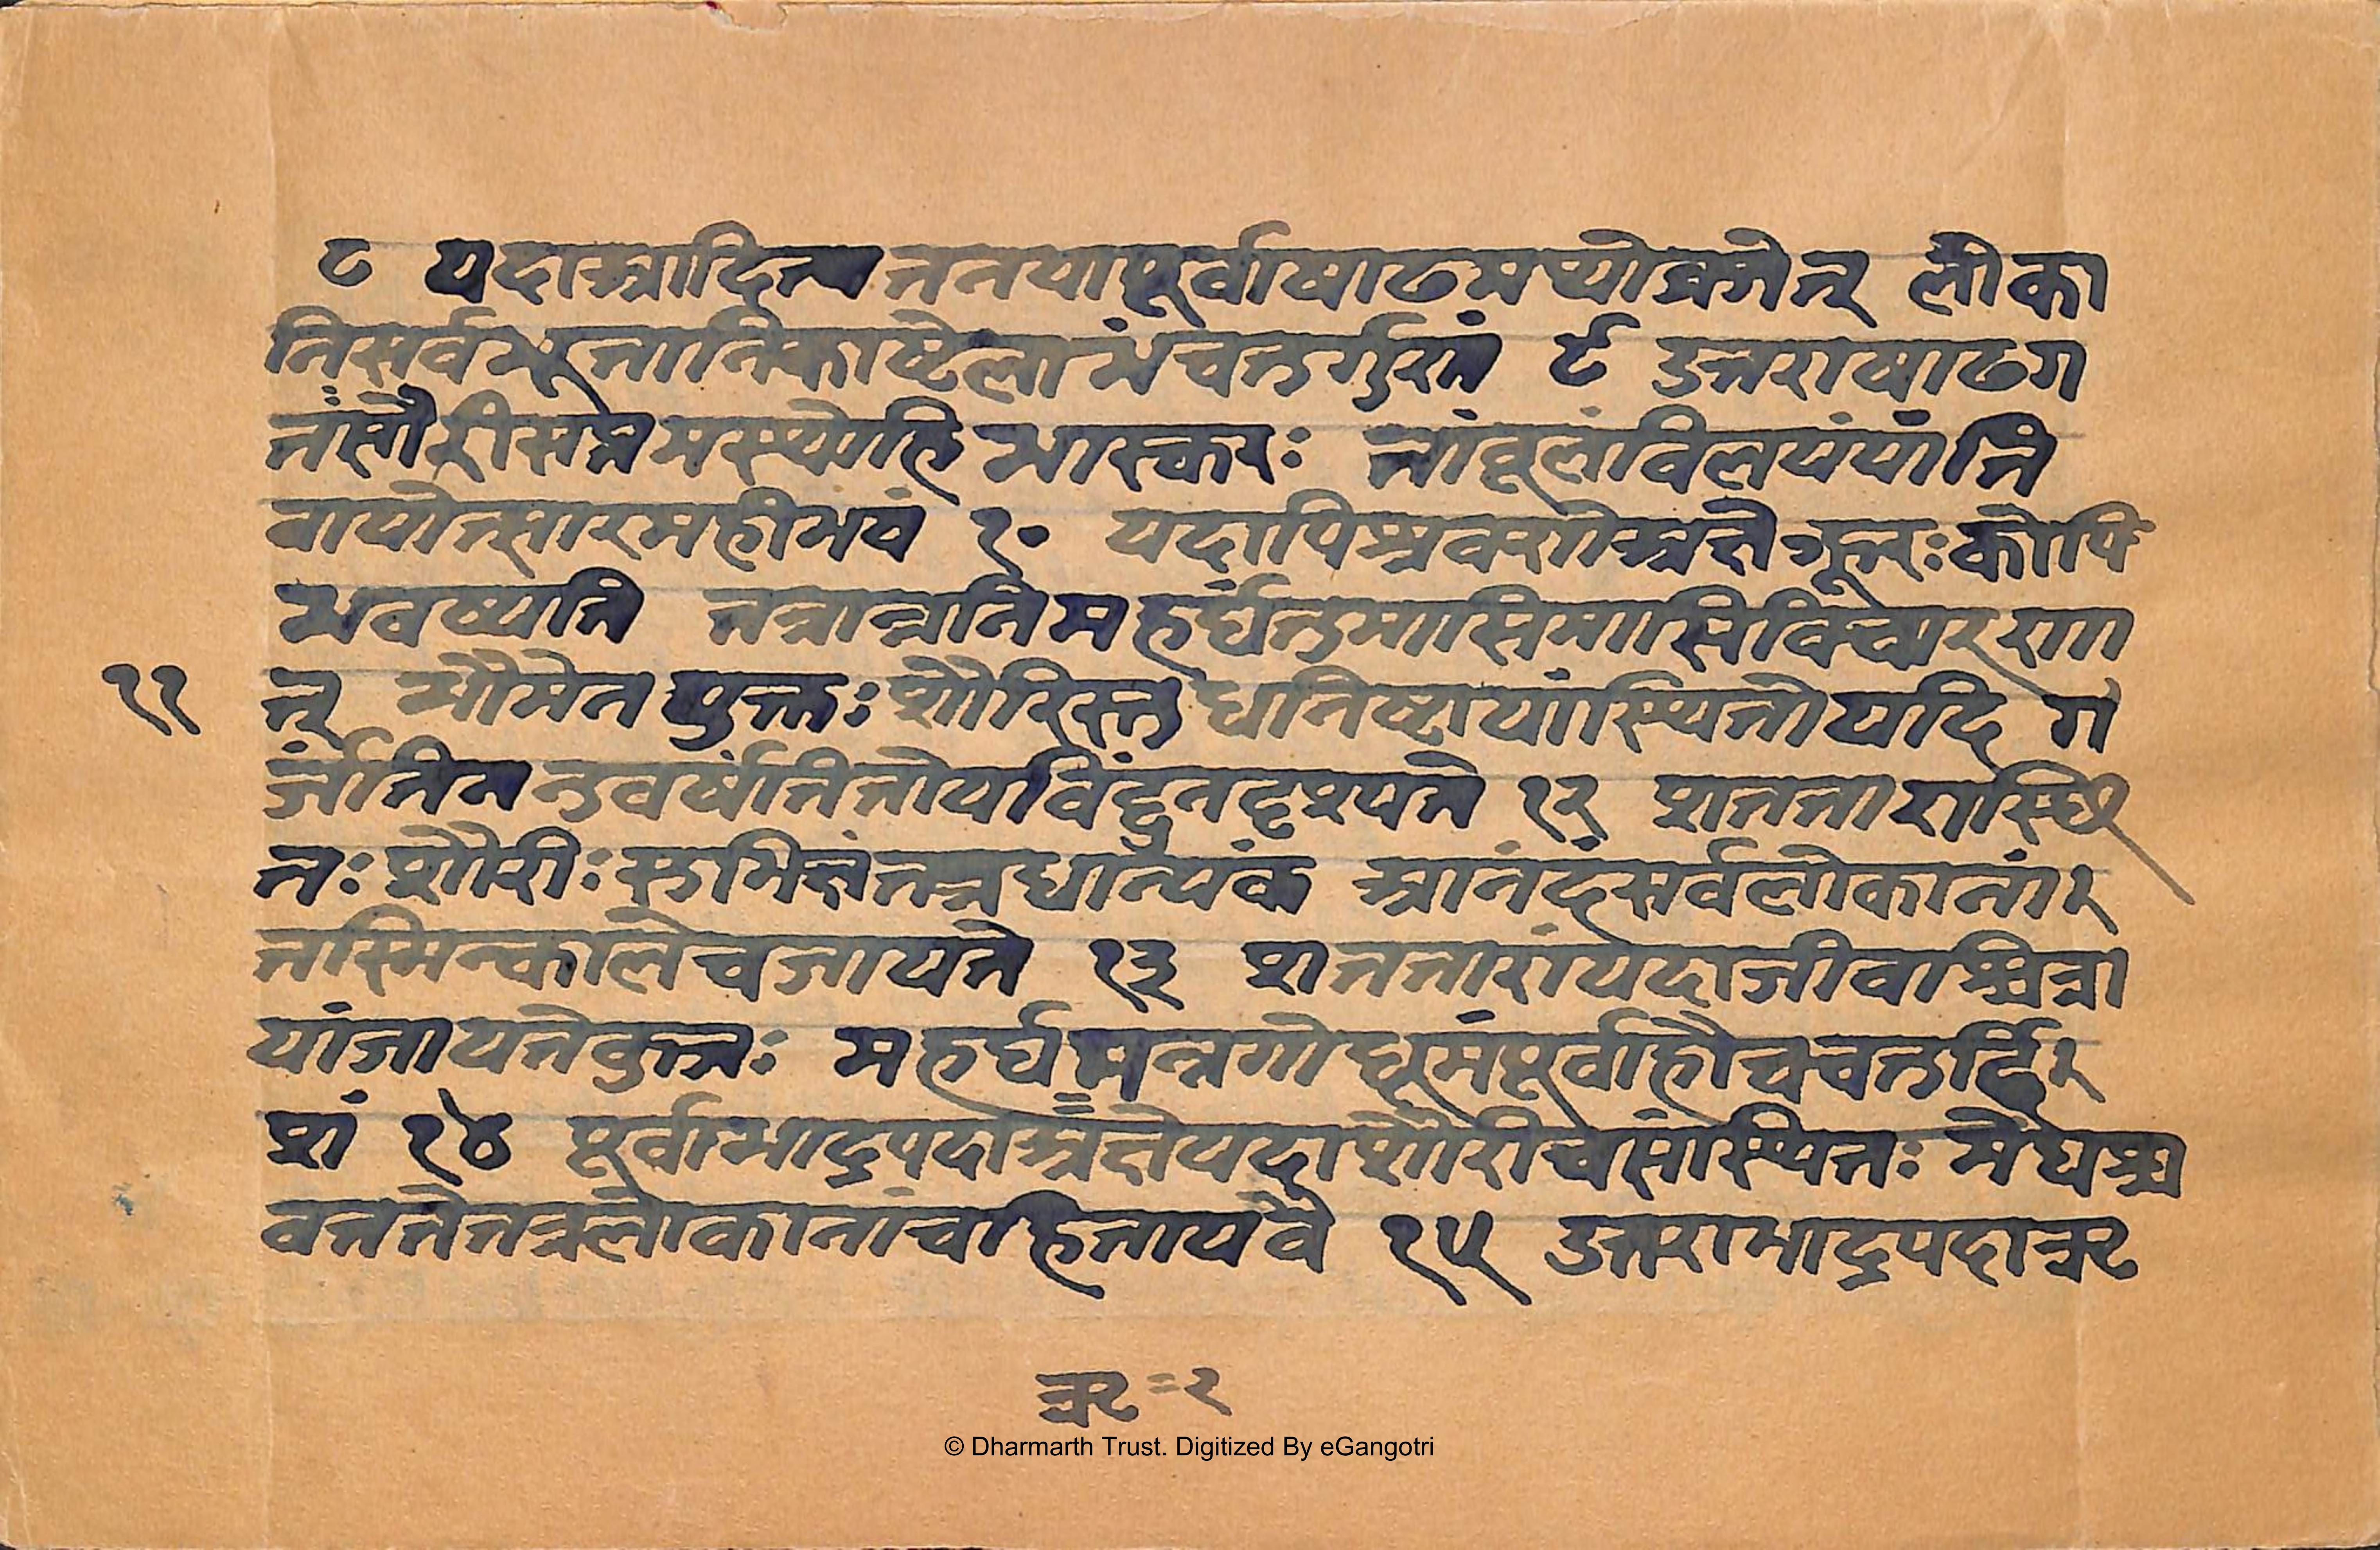 ८ यदाआदित्यतनयापूर्वाषाढमथोव्रजेत् लोका
निसर्वभूतानिकाष्टैलाभंचतुर्गुरां ९ उत्तराषाढग
तंसौरीसप्तमस्थोहिभास्करः तांवूलंविलयंयांति
वायोत्सारमहीभवं १० यदापिश्रवरगोऋत्तेगूलरःकोपि
भवष्यति तत्रान्नतिमहर्घंतुमासिमासिविचाररगा
११ त् भौमेनयुक्तःशौरिस्तुधनिष्टायांस्थितोयदि ग
र्जंतिनतुवर्षंतितोयविंदुनदृश्यते १२ शततारास्थि
तः शौरीःसुभित्तंतत्रधान्यंकं आनंदंसर्वलोकानां
तस्मिन्कालेचजायते १३ शततारांयदाजीवाश्चित्रा
यांजायतेकुजः महर्घमन्नगोधूमंपूर्वाहौचचतुर्दि
शं १४ पूर्वाभाद्रपदाऋत्तेयदाशौरीचसंस्थितः मेघश्च
वततेतत्रलोकानांचाहितायवै १५ उत्तराभाद्रपदाऋ
ऋ = २
© Dharmarth Trust. Digitized By eGangotri